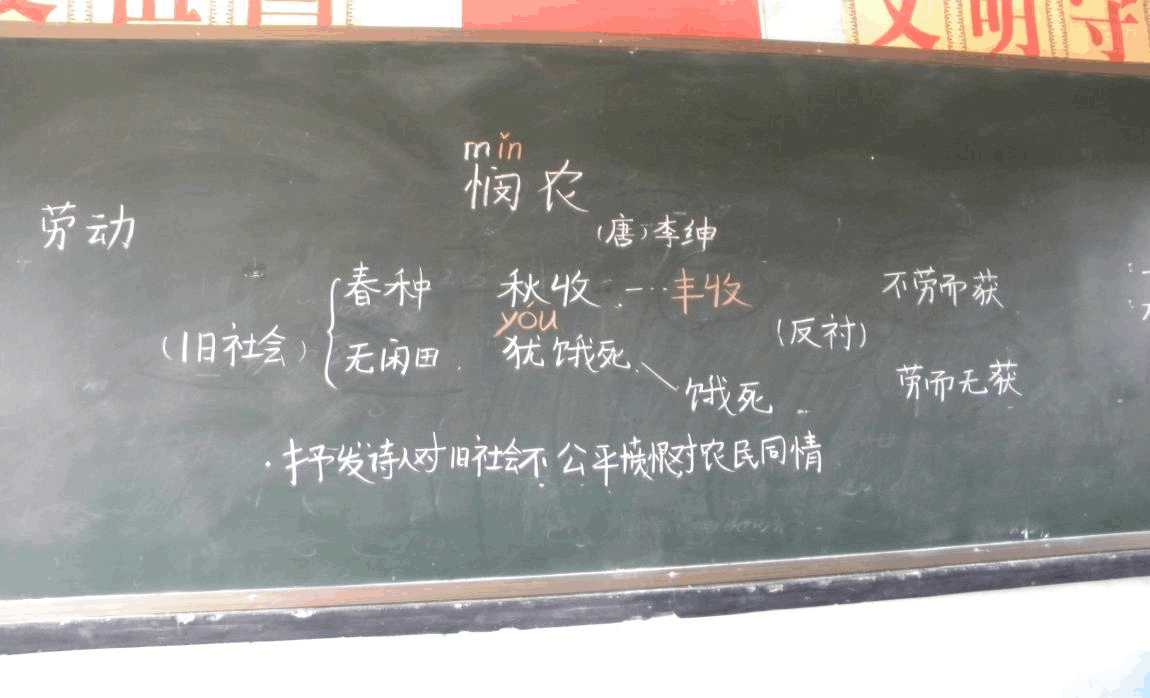 文明守
mǐn
悯农
劳动
(唐)李绅
春种 秋收……丰收 不劳而获
yóu
(旧社会) (反衬)
无闲田 犹饿死 劳而无获
饿死
·抒发诗人对旧社会不公平愤恨对农民同情